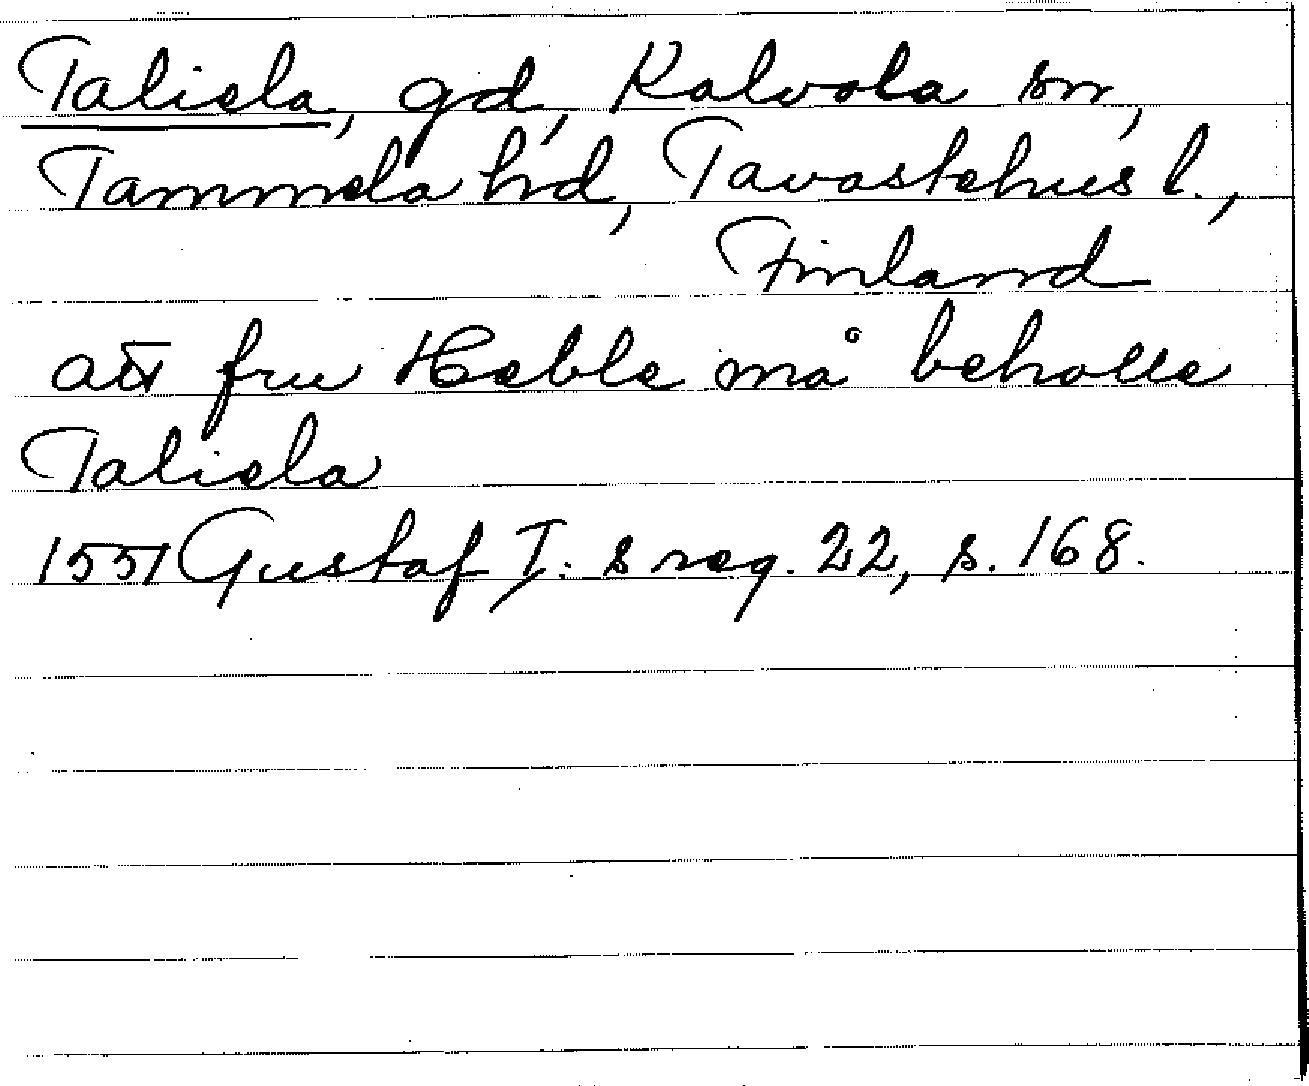 Taliela, gd, Kalvola sn,
Tammela hd, Tavastehus l.,
Finland
att fru Heble må beholle
Taliela
1551 Gustaf I:s reg. 22, s. 168.